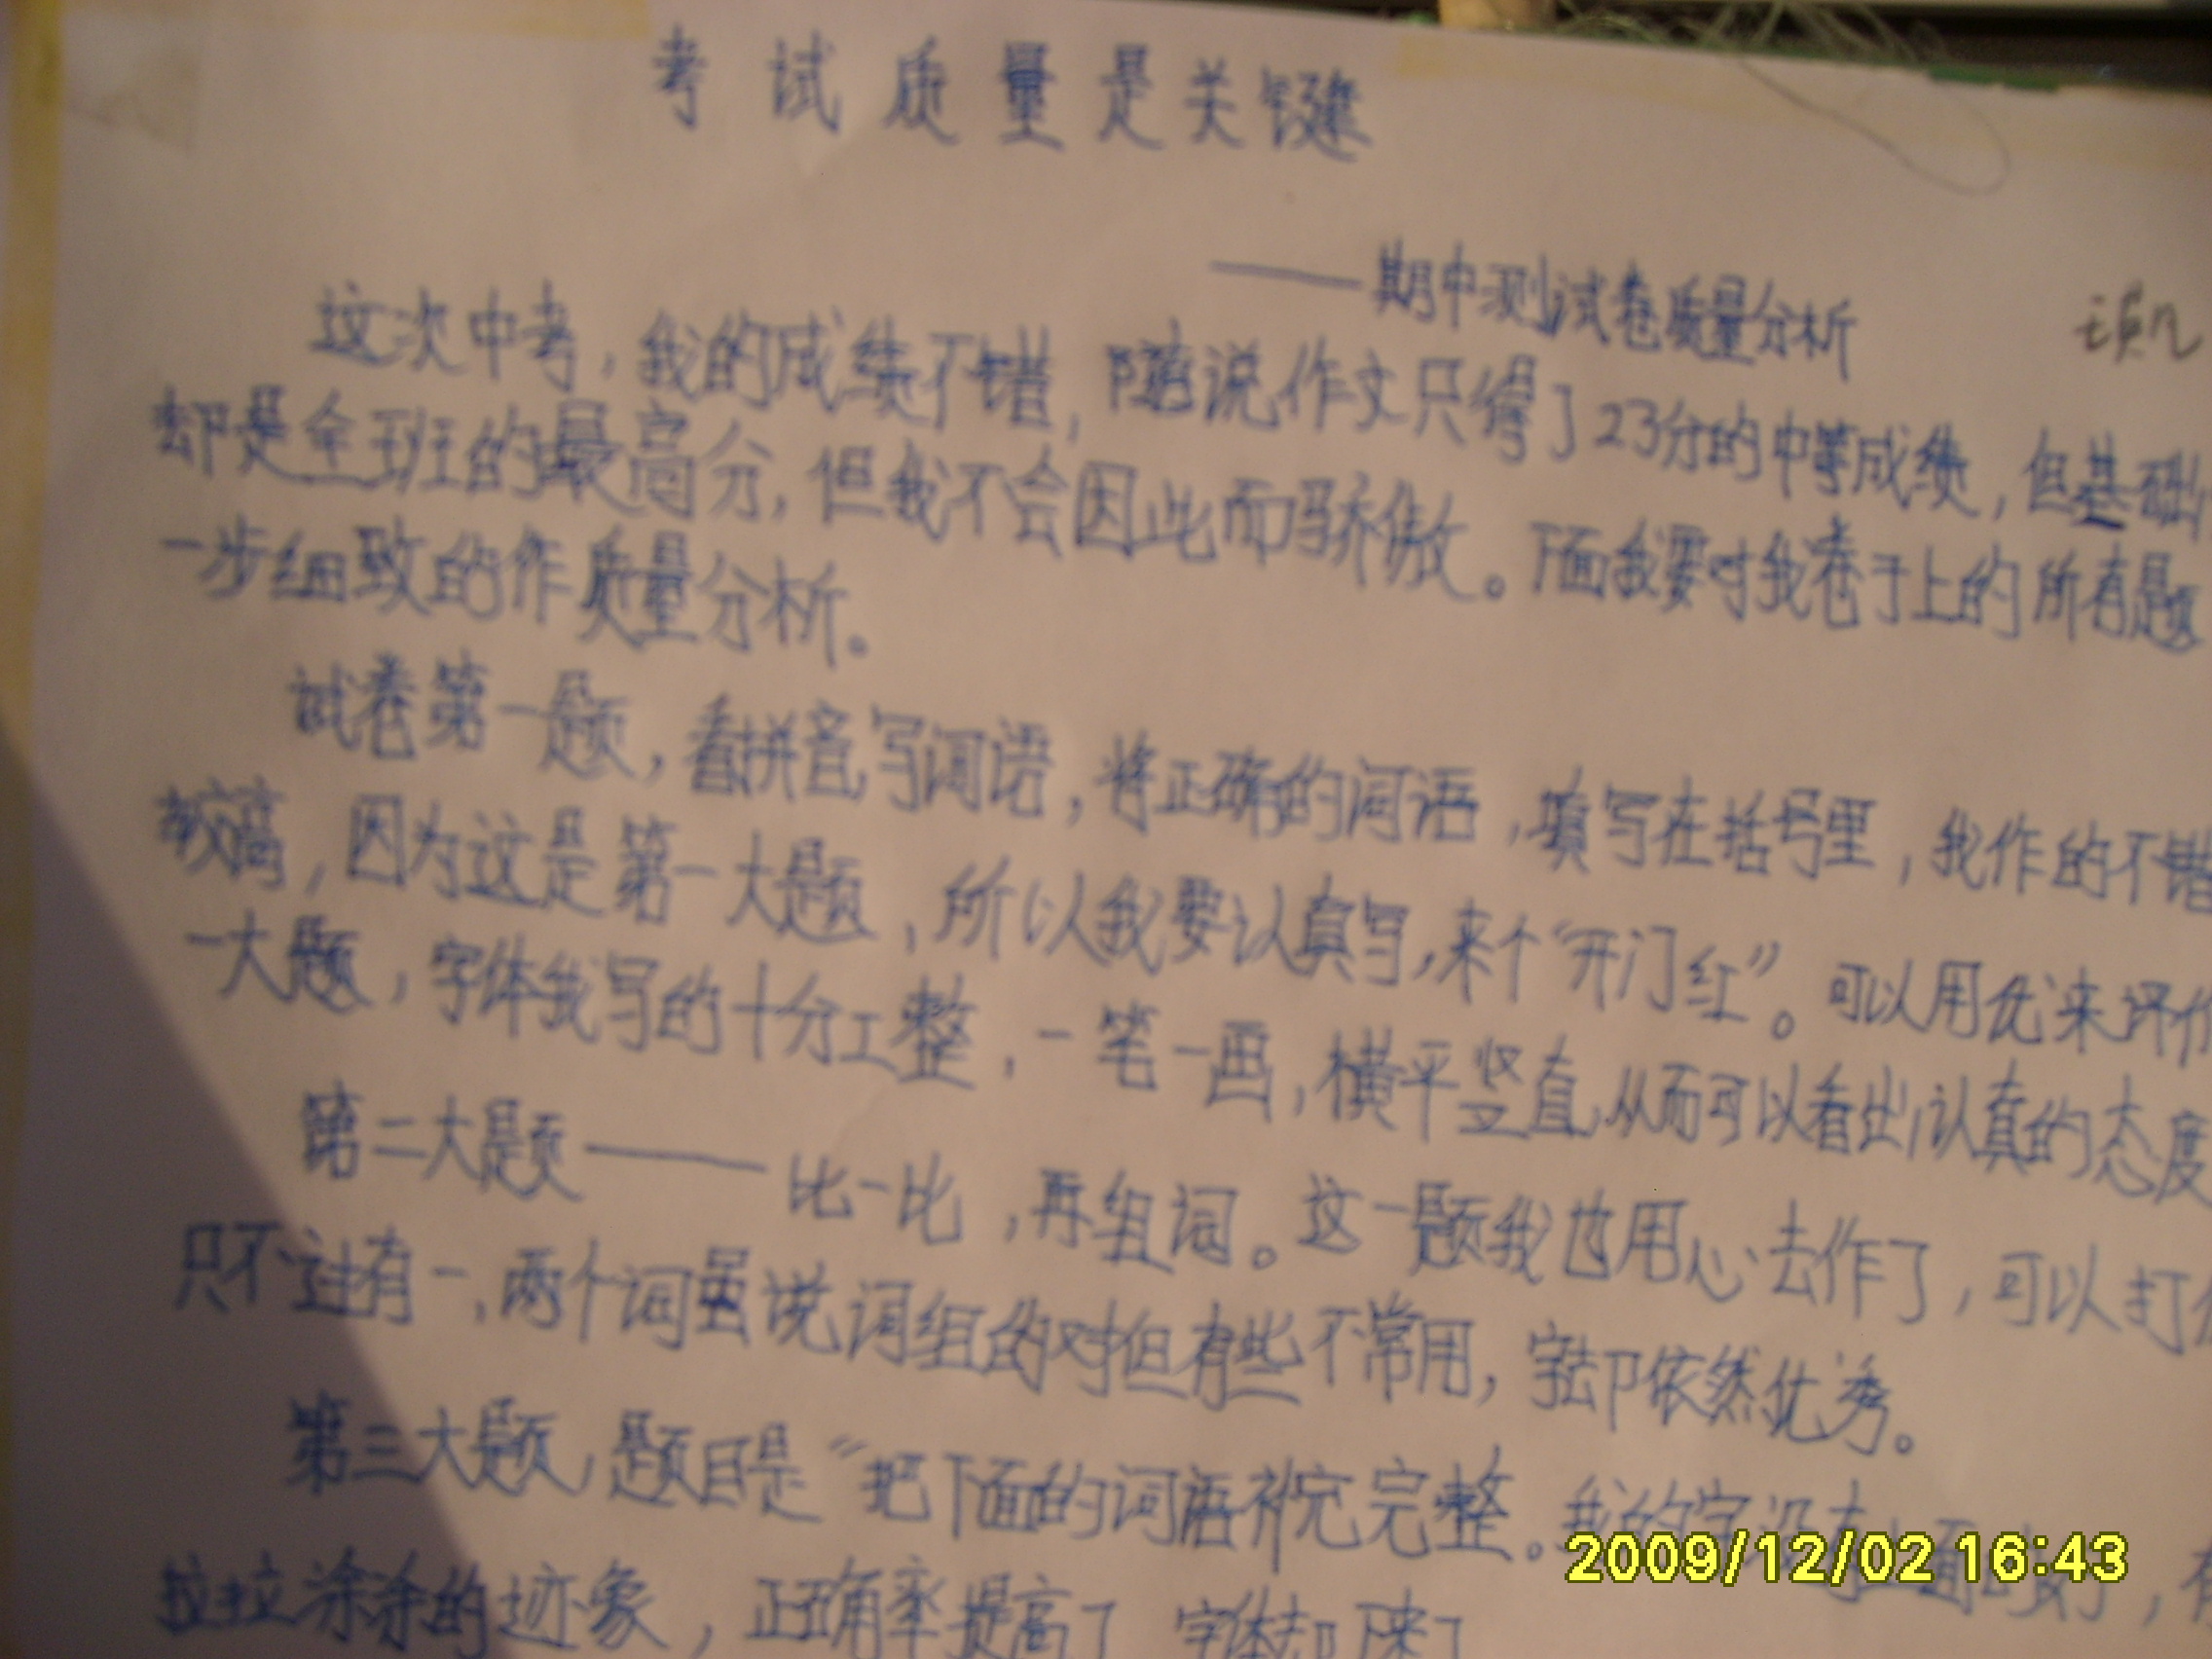 考试质量是关键
——期中测试卷质量分析
这次中考，我的成绩不错，随说作文只得了23分的中等成绩，但基础
却是全班的最高分，但我不会因此而骄傲。下面我要对我卷子上的所有题
一步细致的作质量分析。
试卷第一题，看拼音写词语，将正确的词语，填写在括号里，我作的不错
较高，因为这是第一大题，所以我要认真写，来个“开门红”。可以用优来评价
一大题，字体我写的十分工整，一笔一画，横平竖直，从而可以看出认真的态度
第二大题——比一比，再组词。这一题我也用心去作了，可以打
只不过有一、两个词虽说词组的对但有些不常用，字却依然优秀。
第三大题，题目是“把下面的词语补充完整。我的字没有上面的好，有
拉拉涂涂的迹象，正确率提高了，字体却下来了
2009/12/02 16:43